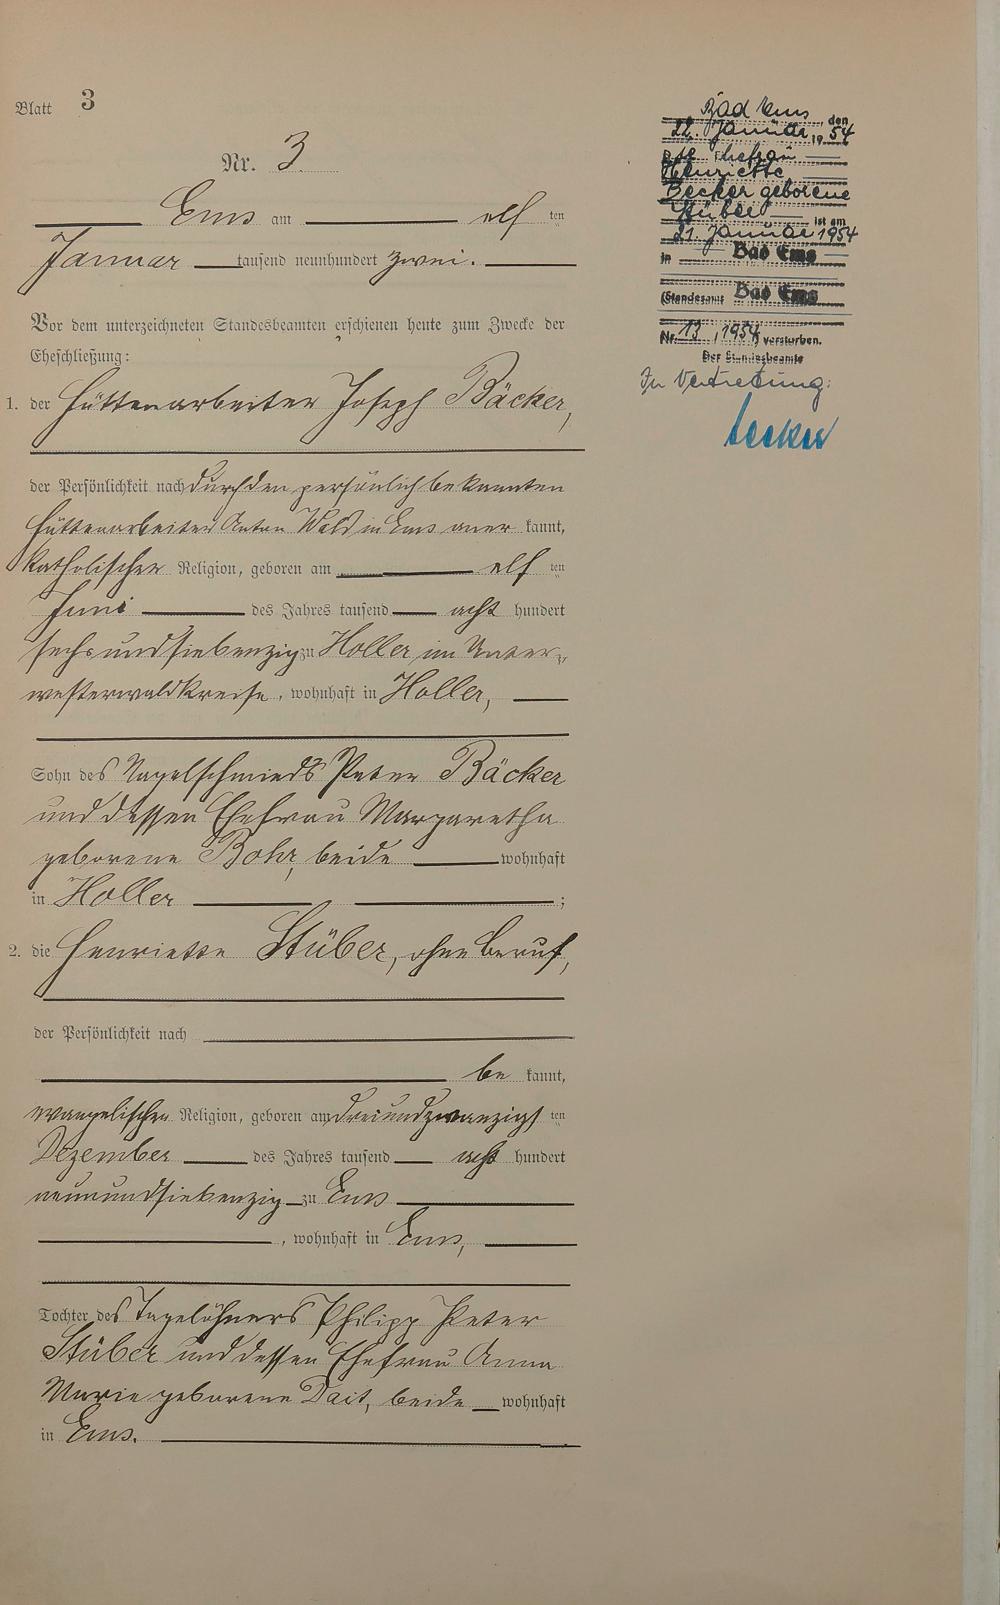 Blatt 3
Nr. 3.
Ems am elf ten
Januar tausend neunhundert zwei.
Vor dem unterzeichneten Standesbeamten erschienen heute zum Zwecke der
Eheschließung:
1. der Hüttenarbeiter Joseph Bäcker,
der Persönlichkeit nach durch den persönlich bekannten
Hüttenarbeiter Anton Wald in Ems aner kannt,
katholischer Religion, geboren am elf ten
Juni des Jahres tausend acht hundert
sechsundsiebenzig zu Holler im Unter-
westerwaldkreise, wohnhaft in Holler,
Sohn des Nagelschmieds Peter Bäcker
und dessen Ehefrau Margaretha
geborene Bohr, beide wohnhaft
in Holler ;
2. die Henriette Stüber, ohne Beruf,
der Persönlichkeit nach
be kannt,
evangelischer Religion, geboren am dreiundzwanzigs ten
Dezember des Jahres tausend acht hundert
neunundsiebenzig zu Ems
, wohnhaft in Ems,
Tochter des Tagelöhners Philipp Peter
Stüber und dessen Ehefrau Anna
Marie geborene Dait, beide wohnhaft
in Ems.
Bad Ems, den
22. Januar 1954
Die Ehefrau
Henriette
Becker geborene
Stüber ist am
21. Januar 1954
in Bad Ems
(Standesamt Bad Ems
Nr. 13, 1954) verstorben.
Der Standesbeamte
In Vertretung:
Becker